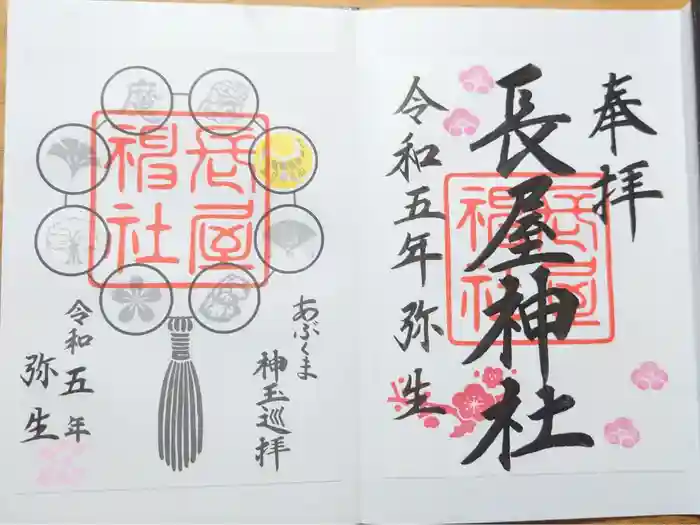 奉拝
長屋神社
令和五年弥生
長屋神社
あぶくま
神玉巡拝
令和五年
弥生
長屋神社